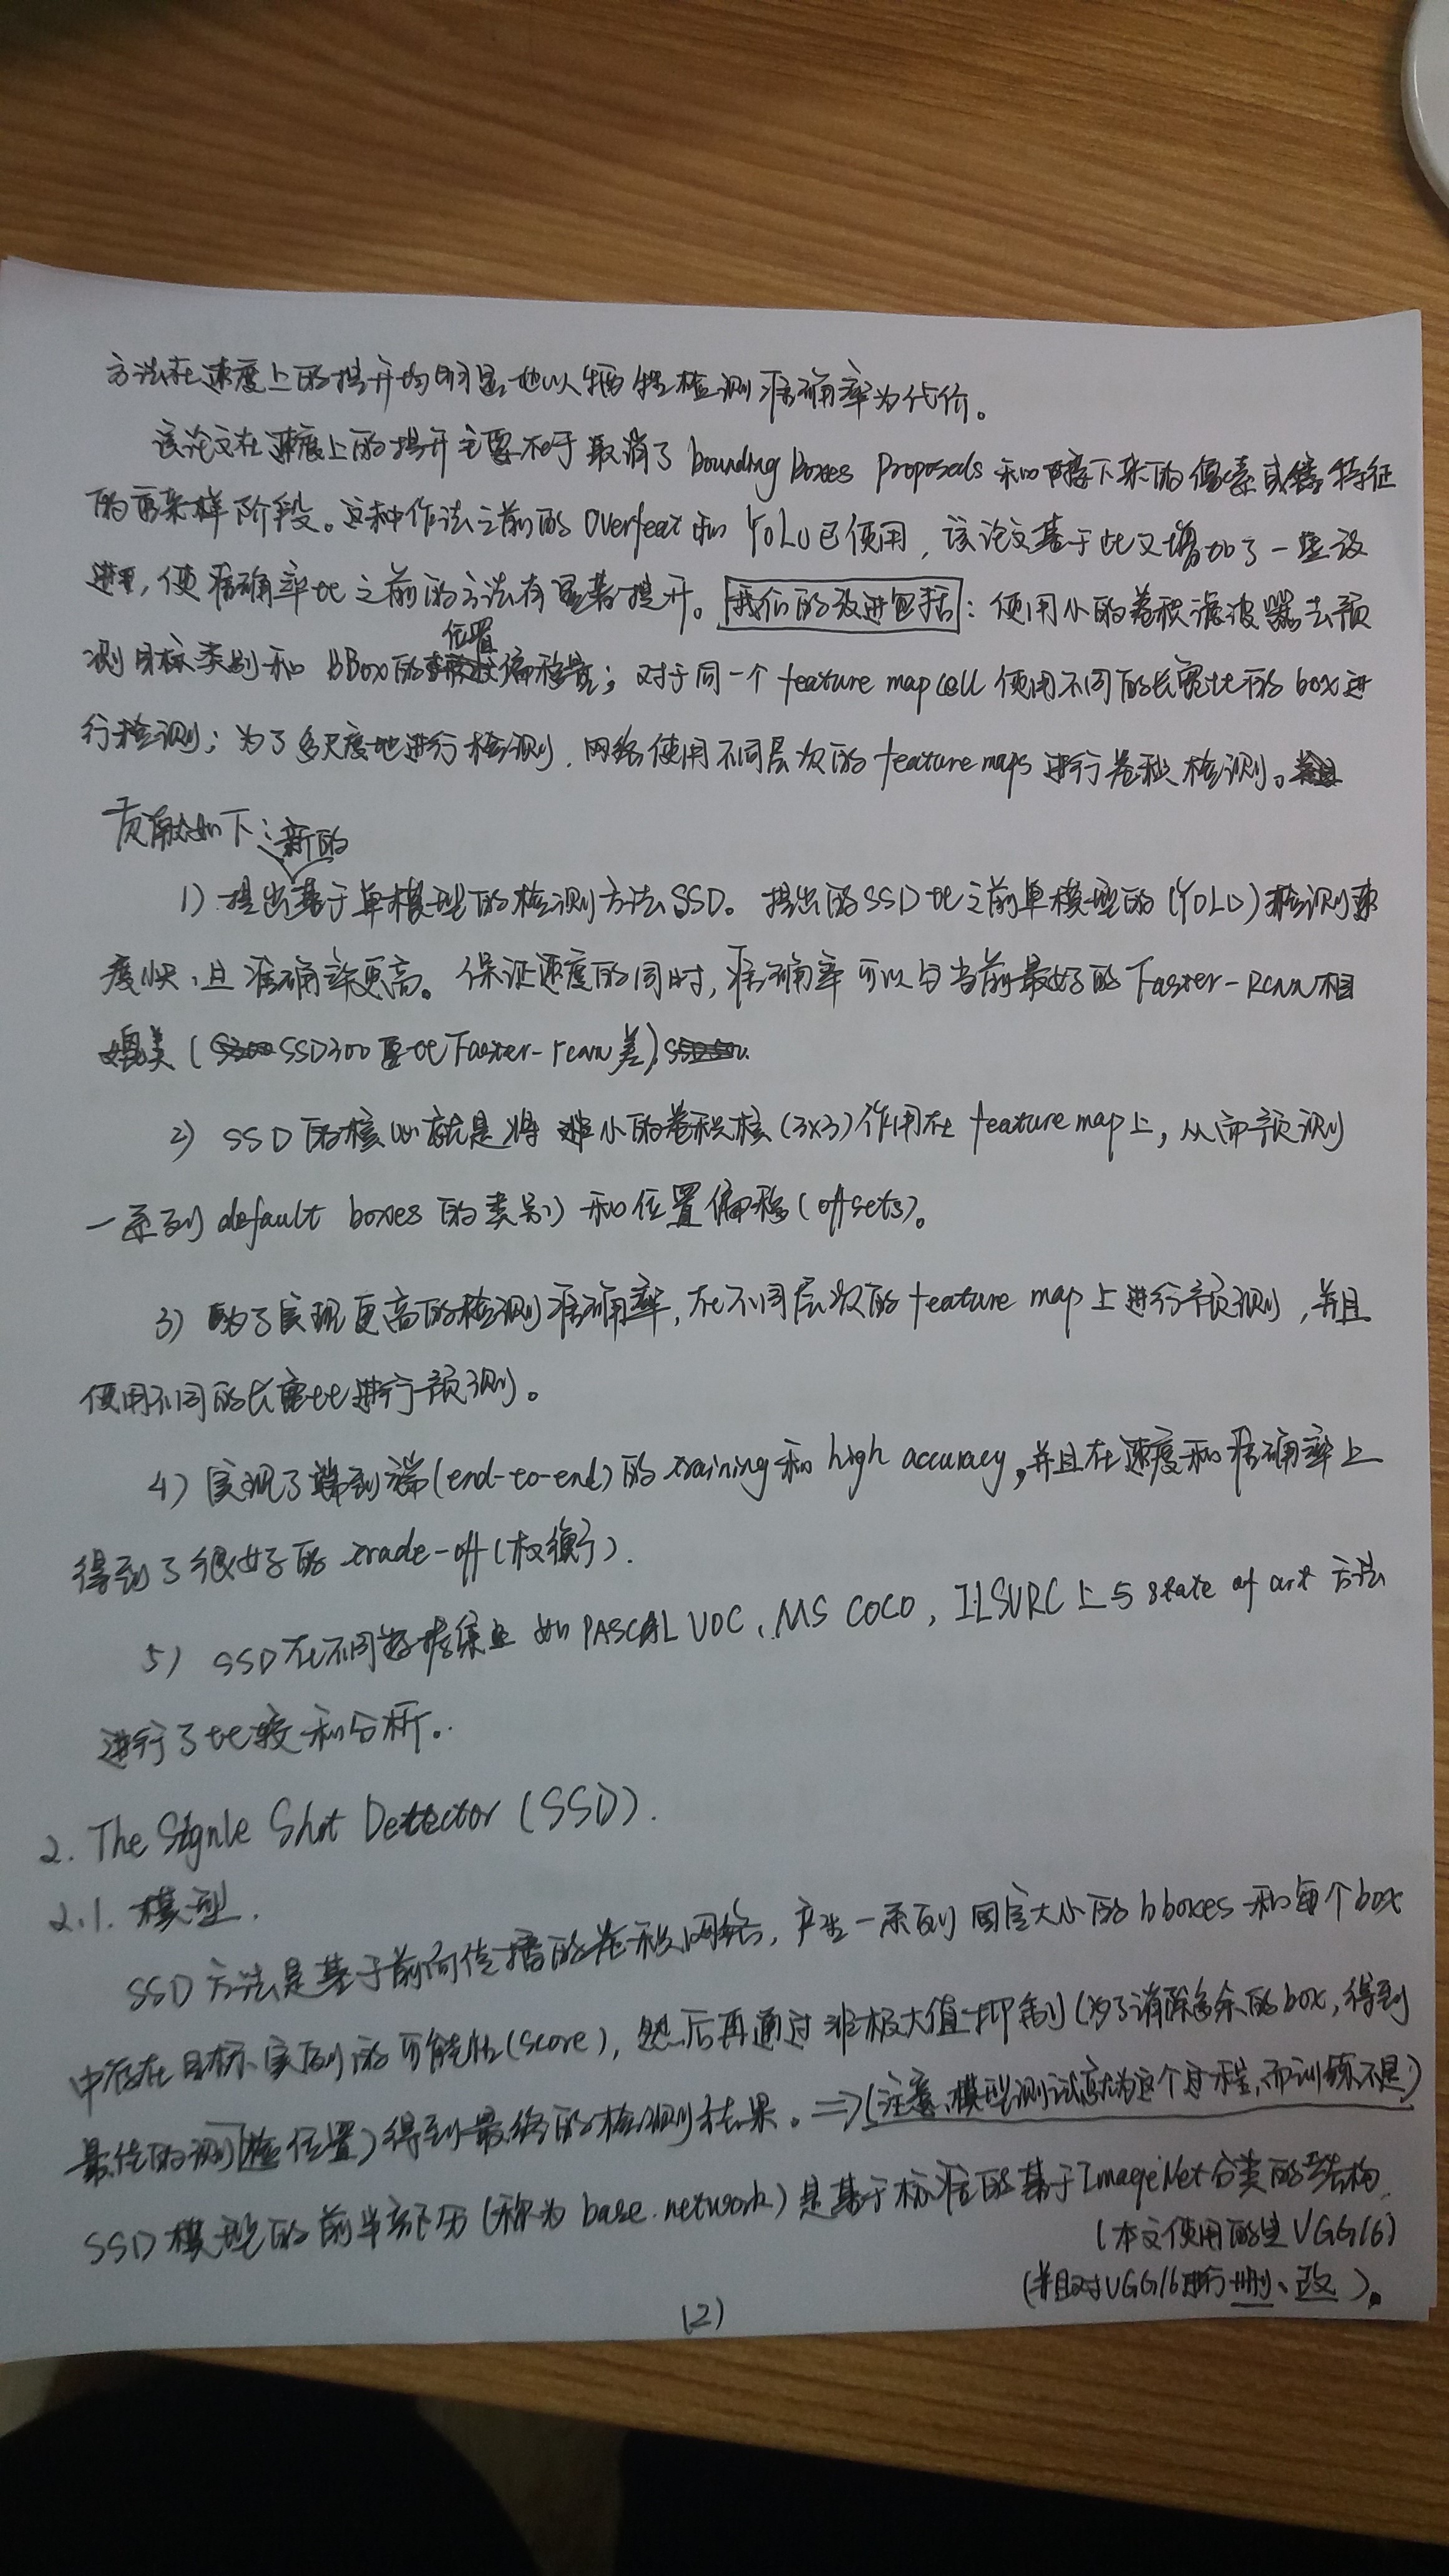 方法在速度上的提升均明显地以牺牲检测准确率为代价。
该论文在速度上的提升主要在于取消了 bounding boxes proposals 和 接下来的像素或特征
的重采样阶段。这种作法之前的 Overfeat 和 YOLO已使用，该论文基于此又增加了一些改
进，使准确率比之前的方法有显著提升。我们的改进包括：使用小的卷积滤波器去预
测目标类别和 BBox的位置偏移量；对于同一个 feature map cell 使用不同的长宽比的 box 进
行检测；为了多尺度地进行检测，网络使用不同层次的 feature maps 进行卷积检测。
贡献如下：
1) 提出新的基于单模型的检测方法SSD。提出的SSD比之前单模型的(YOLO)检测速
度快、且准确率更高。保证速度的同时，准确率可以与当前最好的Faster-Rcnn相
媲美 (SSD300要比Faster-rcnn差)。
2) SSD的核心就是将小的卷积核(3x3)作用在 feature map上，从而预测
一系列 default boxes 的类别和位置偏移(offsets)。
3) 为了实现更高的检测准确率，在不同层次的 feature map 上进行预测，并且
使用不同的长宽比进行预测。
4) 实现了端到端(end-to-end)的 training 和 high accuracy，并且在速度和准确率上
得到了很好的 trade-off(权衡).
5) SSD在不同数据集上 如 PASCAL VOC、MS COCO，ILSVRC 上与 state of art 方法
进行了比较和分析。
2. The Signle Shot Detector (SSD).
2.1. 模型.
SSD方法是基于前向传播的卷积网络，产生一系列固定大小的 bboxes 和每个box
中存在目标实例的可能性(score)，然后再通过非极大值抑制(为了消除多余的box，得到
最佳的检测位置)得到最终的检测结果。⇒(注意、模型测试就为这个过程，而训练不是)
SSD模型的前半部分(称为 base network)是基于标准的基于ImageNet分类的结构.
(本文使用的是VGG16)
(并且对VGG16进行 删、改)。
(2)